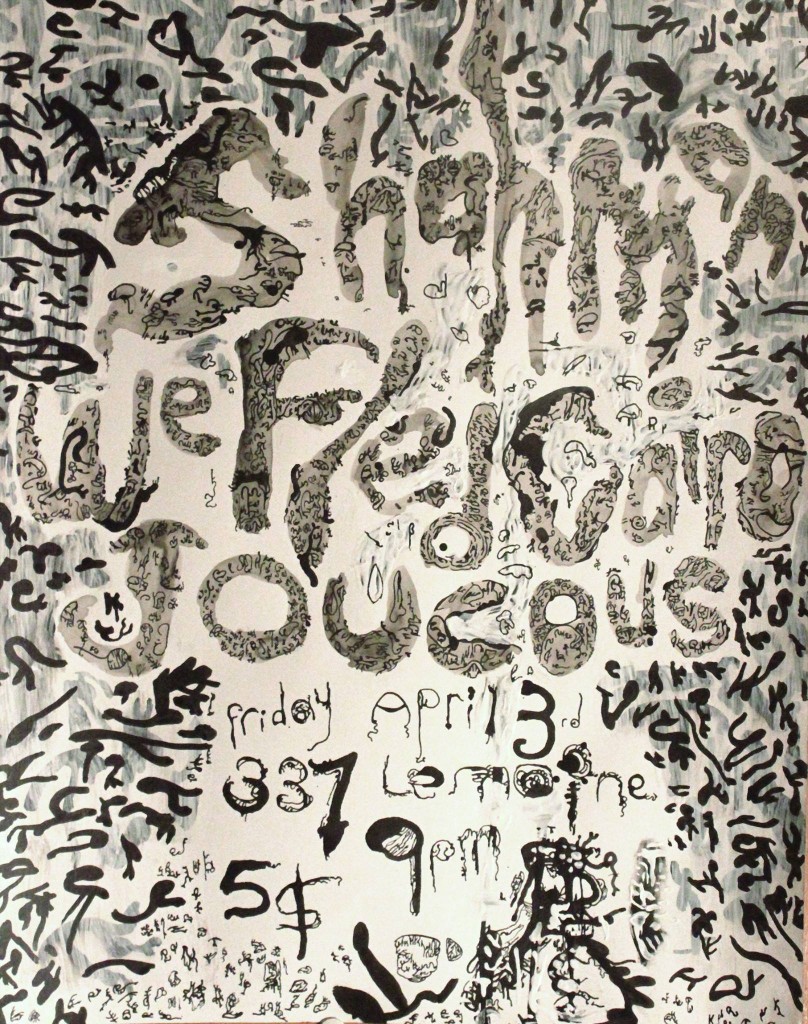 Shanmin
We Fled Cairo
Joucous
friday April 3rd
337 Lemoine
9pm
5$